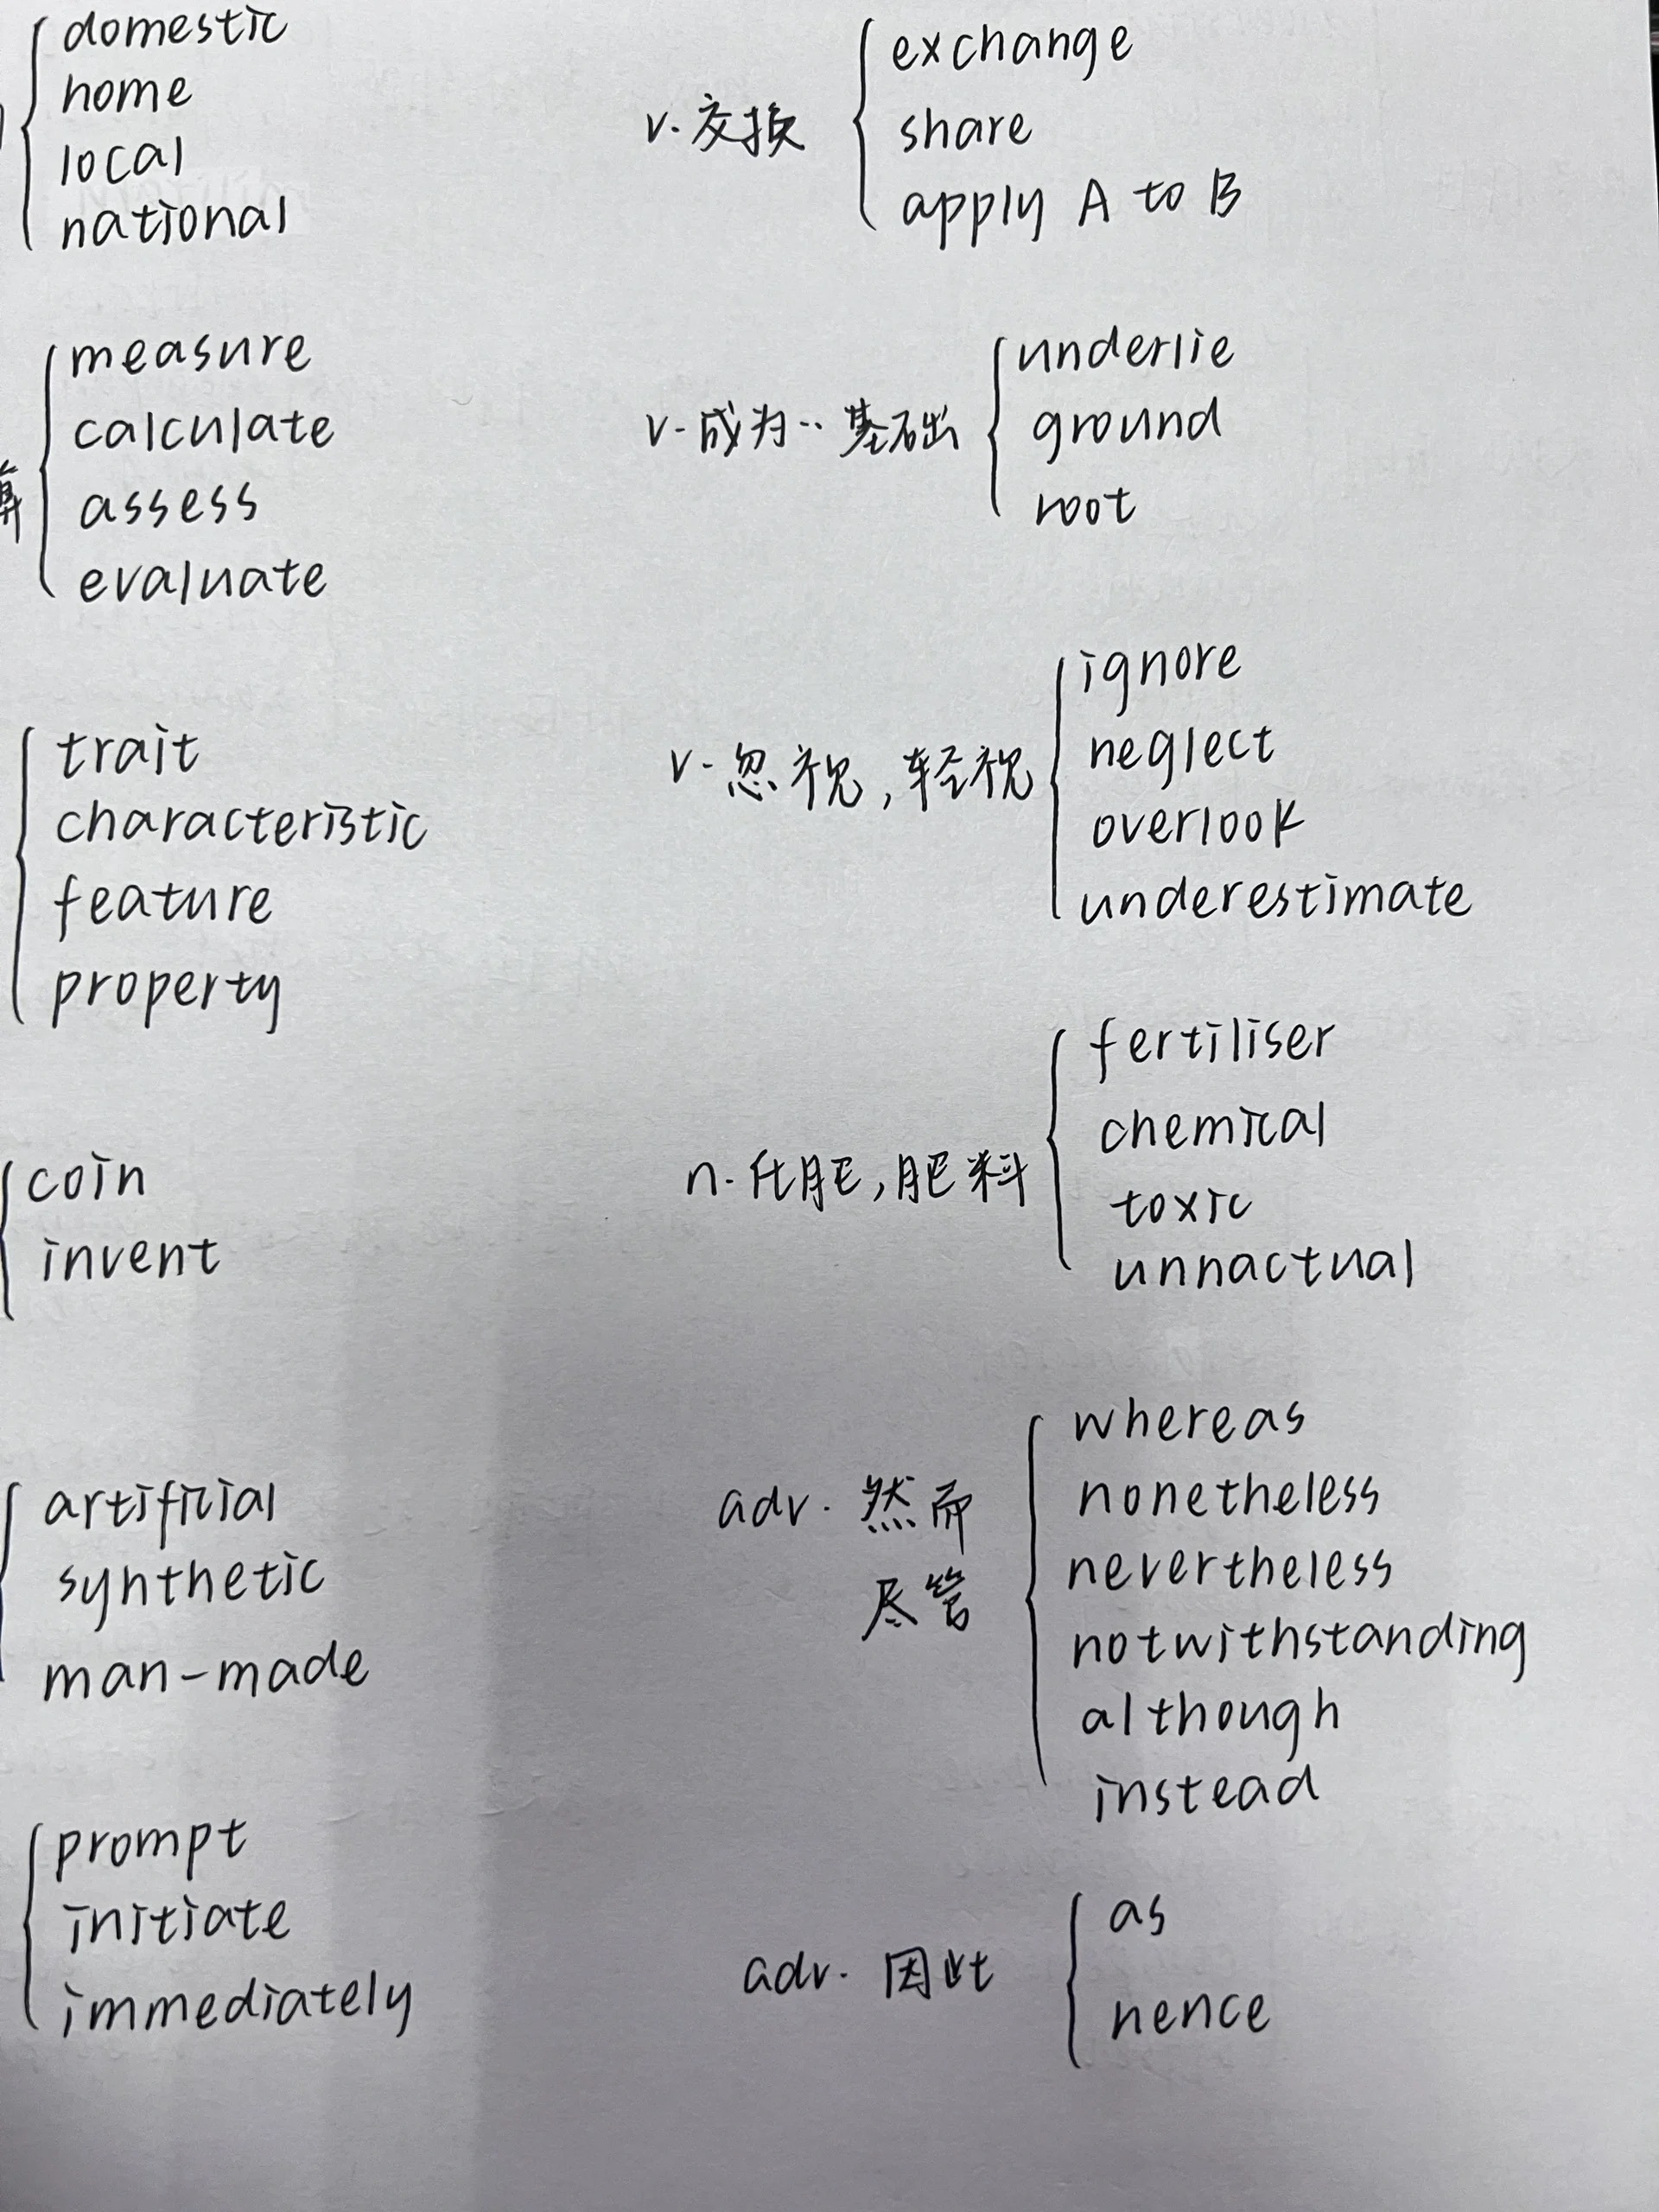 domestic
home
local
national
measure
calculate
算
assess
evaluate
trait
characteristic
feature
property
coin
invent
artificial
synthetic
man-made
prompt
initiate
immediately
v. 交换
exchange
share
apply A to B
v. 成为.. 基础
underlie
ground
root
v. 忽视, 轻视
ignore
neglect
overlook
underestimate
n. 化肥, 肥料
fertiliser
chemical
toxic
unnactual
adv. 然而
尽管
whereas
nonetheless
nevertheless
notwithstanding
although
instead
adv. 因此
as
hence